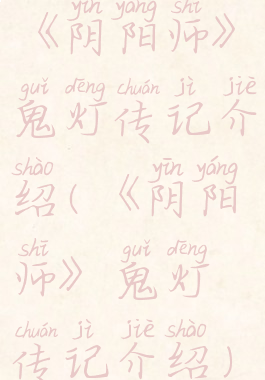 yīn yáng shī
《阴阳师》
guǐ dēng chuán jì jiè
鬼灯传记介
shào yīn yáng
绍(《阴阳
shī guǐ dēng
师》鬼灯
chuán jì jiè shào
传记介绍)